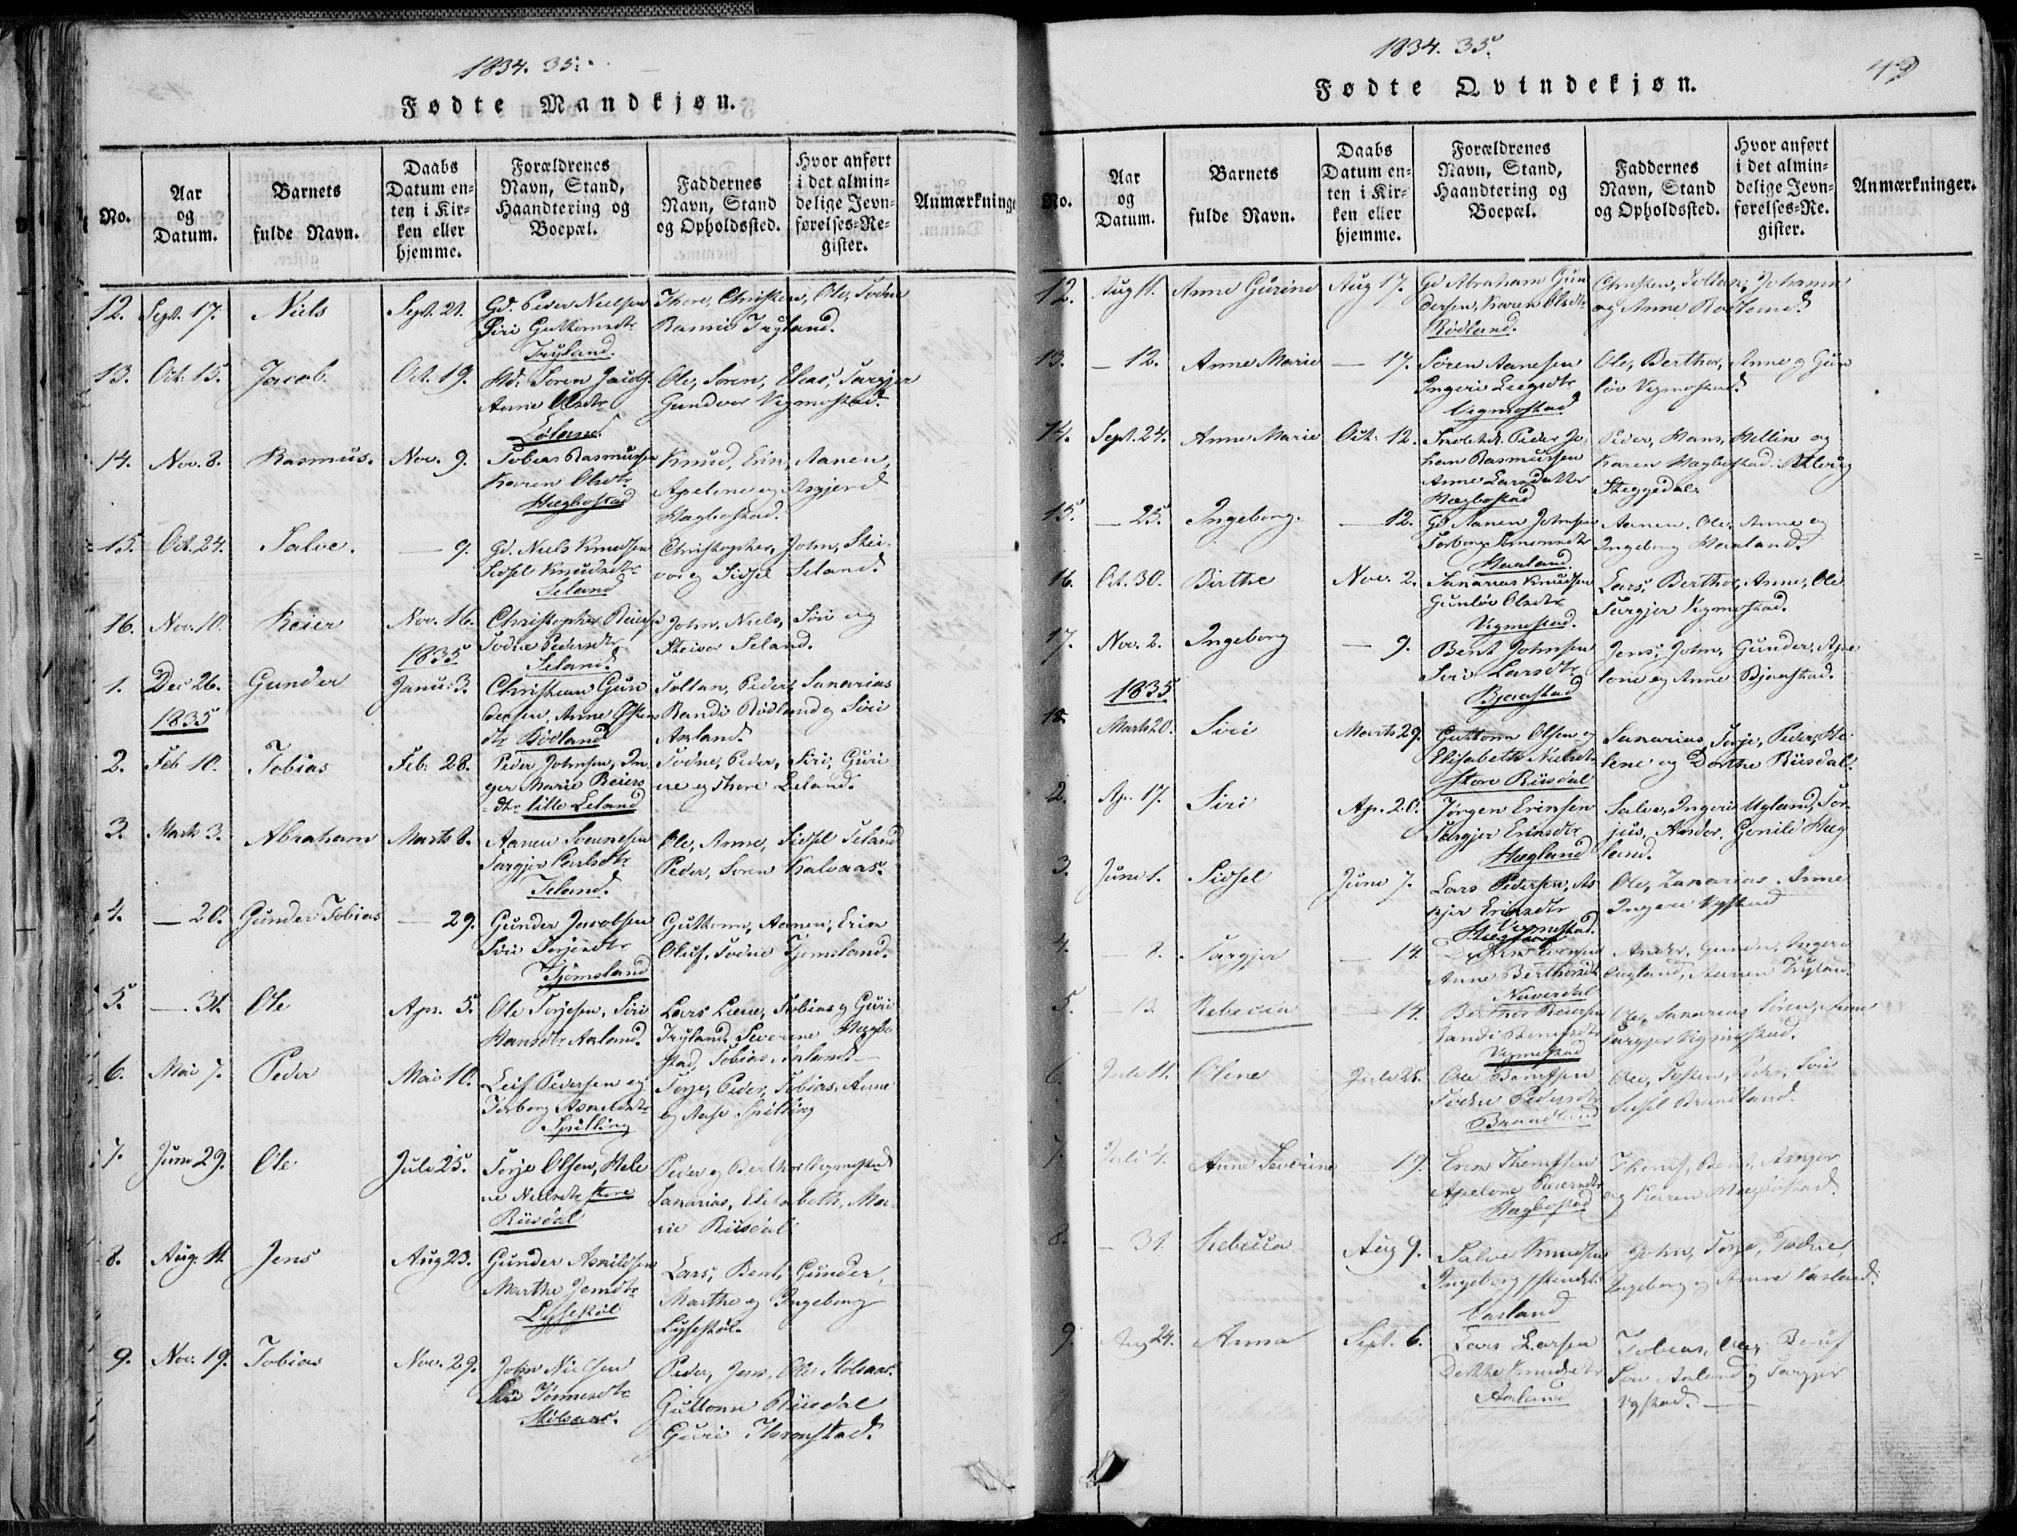 1834. 35.
Fødte Mandkjøn.
No.
Aar
og
Datum.
Barnets
fulde Navn.
Daabs
Datum en-
ten i Kir-
ken eller
hjemme.
Forældrenes
Navn, Stand,
Haandtering og
Boepæl.
Faddernes
Navn, Stand
og Opholdssted.
Hvor anført
i det almin-
delige Jevn-
førelses-Re-
gister.
Anmærkninge
12. Sept. 17. Niels Sept. 21.
Gd. Peder Nielsen
Siri Guttormsdtr
Tryland.
Thore, Christen, Ole, Todne
Tryland.
13. Oct. 15. Jacob Oct. 19.
Søren Jacobs.
Anne Olsdtr
Ole, Søren, Elias, Targjer
Gundvor Vigmostad.
14. Nov. 8. Rasmus. Nov. 9.
Tobias Rasmussen
Karen Olsdtr
Hægbostad
Knud, Erin, Aanen,
Apelone og Asgjerd
Hægbostad.
15. Oct. 24. Salve. — 9.
Gd. Niels Knudsen
Sidsel Knudsdtr
Seland
Christopher, John, Stei-
vor og Sidsel Seland.
16. Nov. 10. Reier Nov. 16.
Christopher Reiers
Todne Pedersdtr
Seland.
John, Niels, Siri og
Steivor Seland.
1835
1. Dec 26. Gunder Janu. 3.
Christian Gun
dersen, Anne
dtr Rødland
Toltan, Peder, Sanarias
Randi Rødland og Siri
Aaland.
1835
2. Feb 10. Tobias Feb. 28.
Peder Johnsen, In
ger Marie Reiers
dtr lille Leland
Todne, Peder, Siri, Guri
ne og Thore Leland.
3. Marts 3. Abraham Marts 8.
Aanen Svennesen
Targjer
Seland.
Ole, Anne, Sidsel Seland
Peder, Søren
4. — 20. Gunder Tobias — 29.
Gunder Jacobsen
Siri Terjesdtr
Tjømsland
Guttorm, Aanen, Erin
Oluf, Todne Tjomsland.
5. — 31. Ole Apr. 5.
Ole Terjesen, Siri
Hansdtr Aaland.
Lars Liene, Tobias og Guri
Tryland, Severine Hægbo
stad, Tobias Aaland.
6. Mai 7. Peder Mai 10.
Leif Pedersen og
Torborg Asnildsdtr
Spilling
Terje, Peder, Tobias, Anne
og Aase Spilling
7. Juni 29. Ole Juli 25.
Terje Olsen, Hele
ne Nielsdtr store
Riisdal
Peder og Berthor Vigmostad
Sanarias, Elisabeth, Ma-
rie Riisdal
8. Aug. 11. Jens Aug 23.
Gunder Asnildsen
Marthe Jensdtr
Lysestøl
Lars, Bent, Gunder,
Marthe og Ingeborg
Lysestøl.
9. Nov. 19. Tobias Nov. 29.
John Nielsen
Siri Tønnesdtr
Molsaas.
Peder, Jens, Ole Molsaas.
Guttorm Riisdal
Guri Thronstad.
1834. 35.
49
Fødte Qvindekjøn.
No.
Aar
og
Datum.
Barnets
fulde Navn.
Daabs
Datum en-
ten i Kir-
ken eller
hjemme.
Forældrenes
Navn, Stand,
Haandtering og
Boepæl.
Faddernes
Navn, Stand
og Opholdssted.
Hvor anført
i det almin-
delige Jevn-
førelses-Re-
gister.
Anmærkninger.
12. Aug 11. Anne Gurine Aug 17.
Gd Abraham Gun
dersen, Karen Olsdtr
Rødland.
Christen, Toltan, Johanne
og Anne Rødland.
13. — 12. Anne Marie — 17.
Søren Aanesen
Ingeri
Vigmostad
Ole, Berthor, Anne og Gun
løv Vigmostad.
14. Sept. 24. Anne Marie Oct. 12.
Peder Jo-
han Rasmussen
Anne Larsdatter
Hægbostad
Peder, Hans, Hellin og
Karen Hægbostad.
Steggedal.
15. — 25. Ingeborg. — 12.
Gd Aanen Johnsen
Torborg
Haaland.
Aanen, Ole, Anne og
Ingeborg Haaland.
16. Oct. 30. Birthe Nov. 2.
Sanarias Knudsen
Gunløv Olsdtr
Vigmostad.
Lars, Berthor, Anne, Ole
Targjer Vigmostad.
17. Nov. 2. Ingeborg — 9.
Bent Johnsen
Siri Larsdtr
Bjaastad
Jens, John, Gunder, Ape
lone og Anne Bjaastad.
1835
Marts 20. Siri Marts 29.
Guttorm Olsen og
Elisabeth Nielsdtr
store Riisdal
Sanarias, Terje, Peder, He
lene og Dorthe Riisdal.
2. Ap. 17. Siri Apr. 20.
Jørgen Erinsen
Targjer Erinsdtr
Hægland
Salve, Ingeri Ugland, Tor-
jus, Andor, Gonild Hæg
land.
3. Juni 1. Sidsel Juni 7.
Lars Pedersen, As
gjer Erinsdtr
Vigmostad.
Ole, Zanarias, Anne
Ingeri Vigstad
4. — 8. Targjer — 14.
Anne Berthorsdtr
Naverdal
Gunder, Ingeri
Tryland.
5. — 13. Rebecca — 14.
Berthor Reiersen
Randi
Vigmostad
Ole, Sanarias, Søren, Anne
Targjer Vigmostad.
6. Juli 11. Olene Juli 25.
Ole Berntsen
Todne Pedersdtr
Brandland
Ole, Peder, Siri
Sidsel Brandland.
7. Juli 4. Anne Severine 19.
Erin
Apelone
Hægbostad
og Karen Hægbostad.
8. — 31. Rebecca Aug 9.
Salve Knudsen
Ingeborg
Vasland
John, Terje, Todne,
Ingeborg og Anne Vasland.
9. Aug 24. Anna Sept. 6.
Lars Larsen
Dorthe Knudsdtr
Aaland
Tobias, Ole,
Siri Aaland og Targjer
Vigstad.